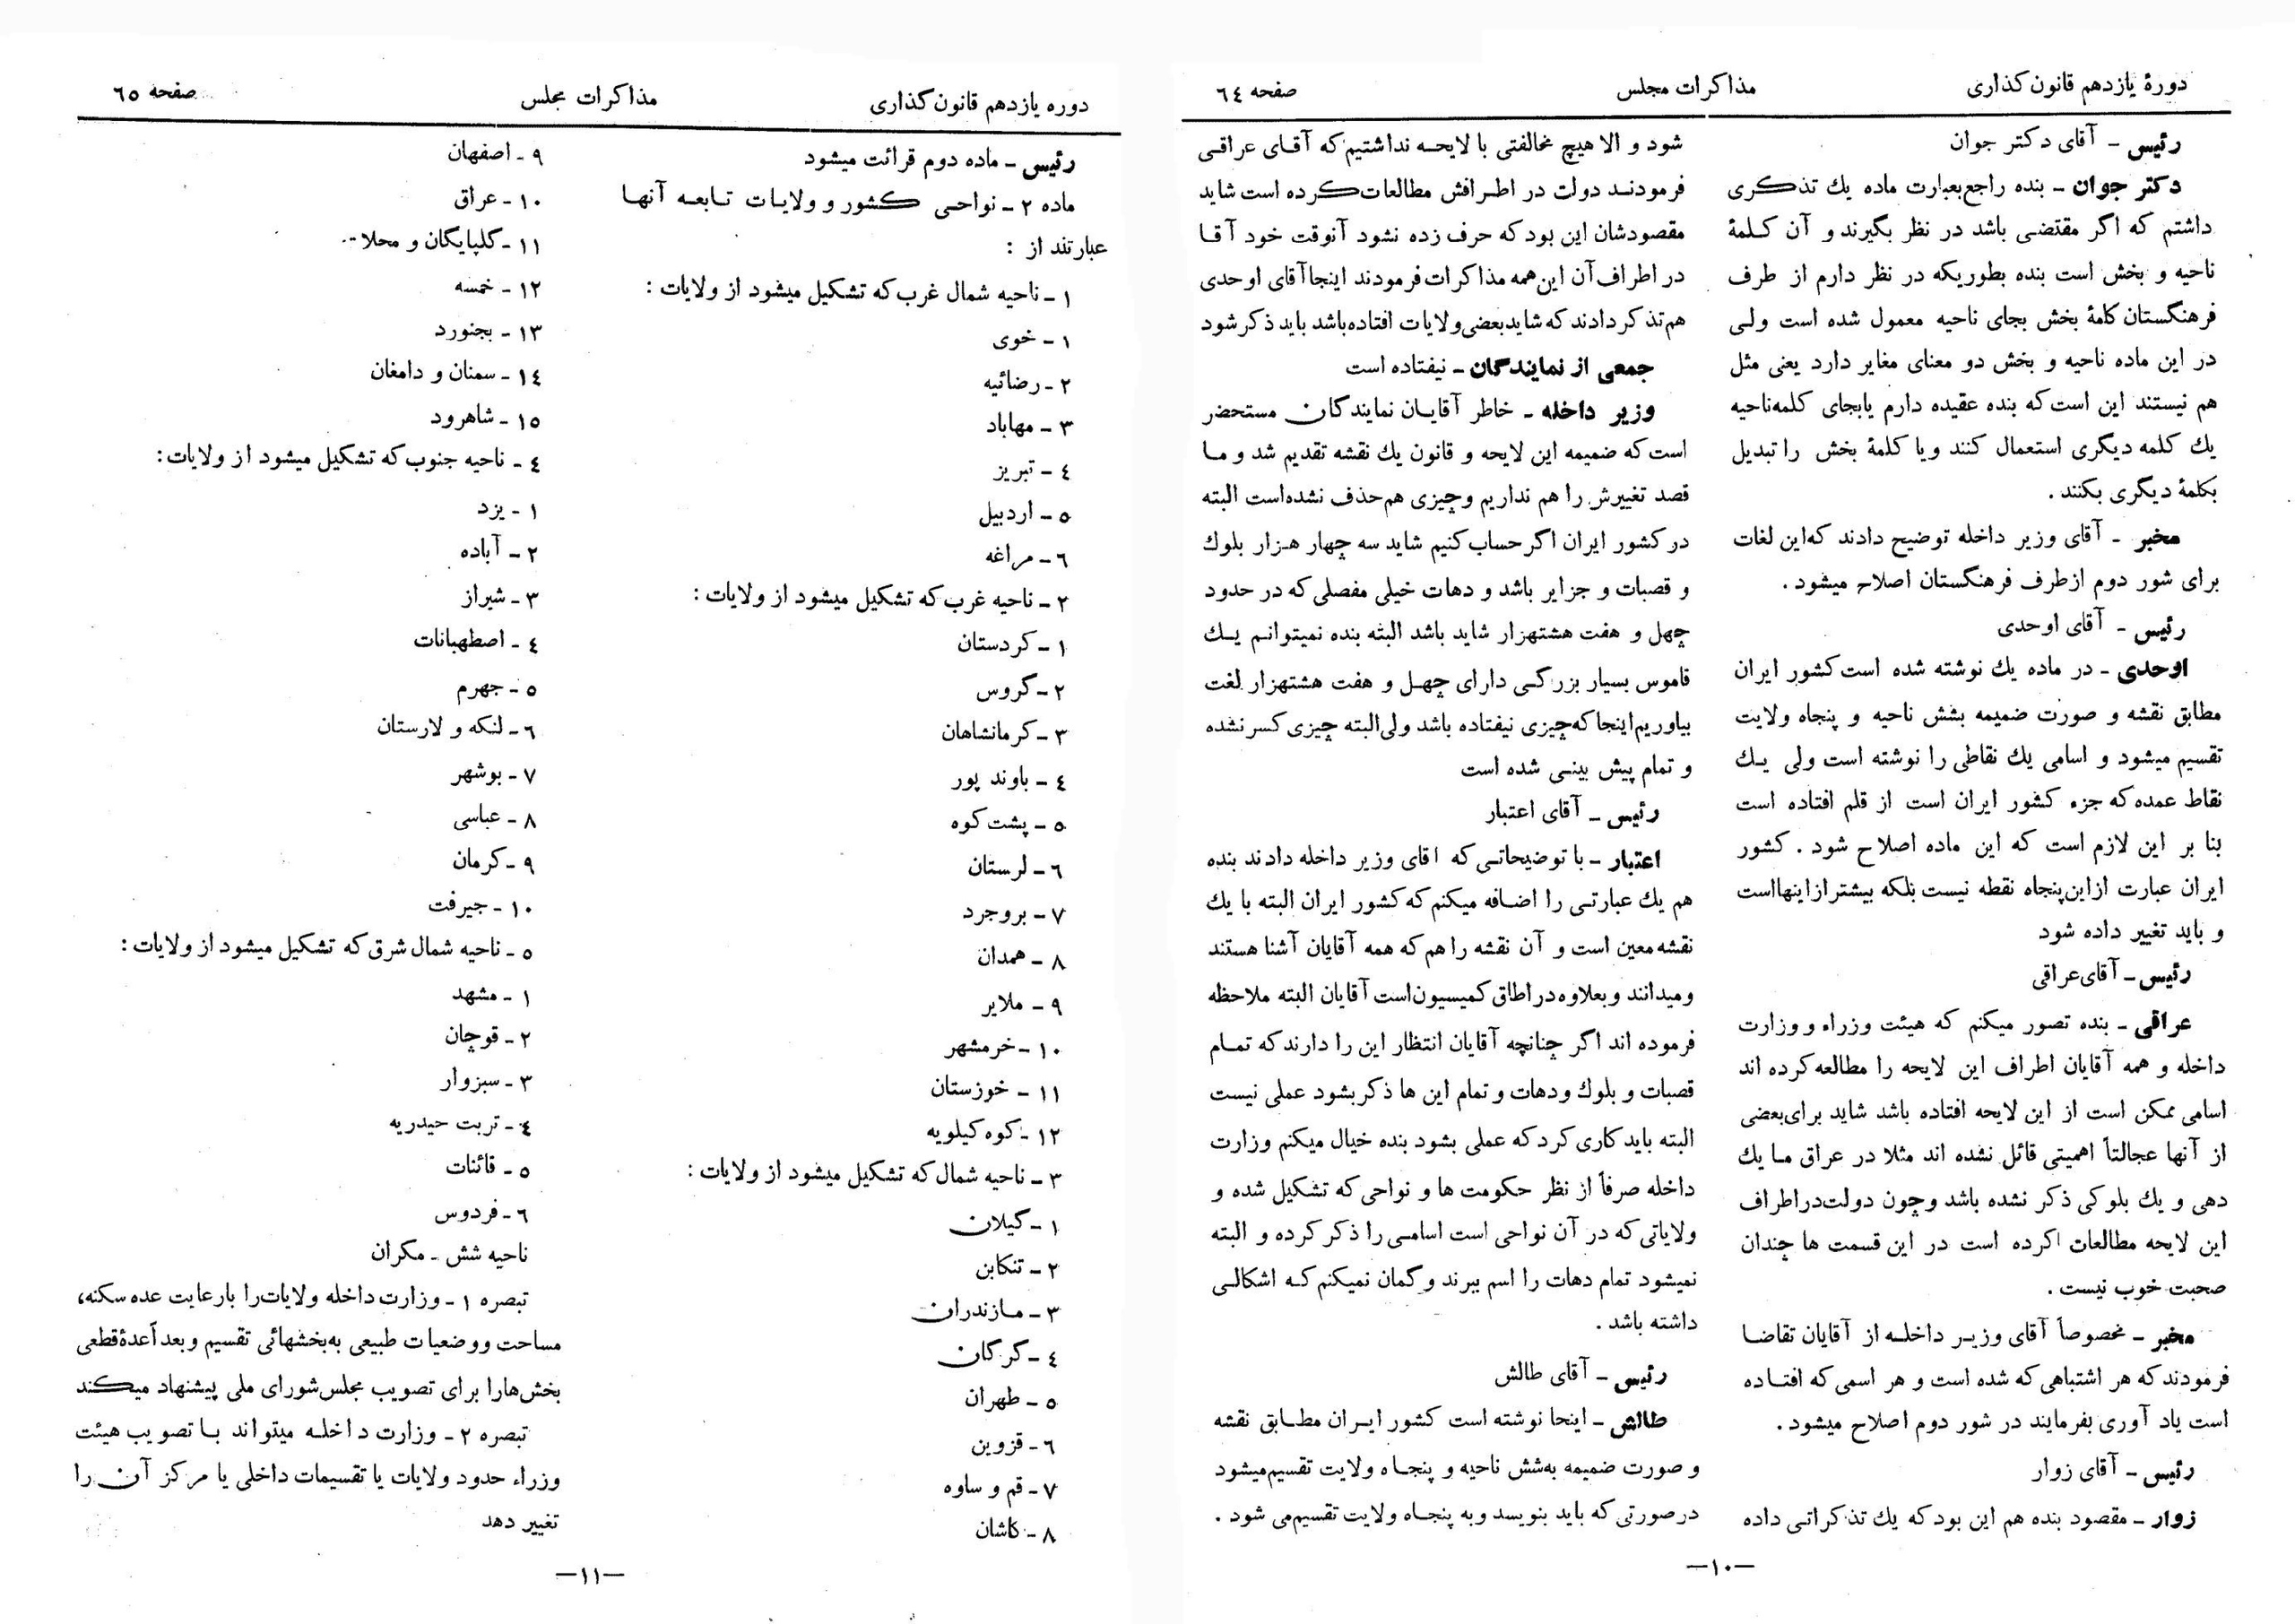 دورهٔ یازدهم قانون‌گذاری
مذاکرات مجلس
صفحه ٦٤
رئیس ـ آقای دکتر جوان
دکتر جوان ـ بنده راجع بعبارت ماده یك تذکری
داشتم که اگر مقتضی باشد در نظر بگیرند و آن کلمهٔ
ناحیه و بخش است بنده بطوریکه در نظر دارم از طرف
فرهنگستان کلمهٔ بخش بجای ناحیه معمول شده است ولی
در این ماده ناحیه و بخش دو معنای مغایر دارد یعنی مثل
هم نیستند این است که بنده عقیده دارم یا بجای کلمه ناحیه
یك کلمه دیگری استعمال کنند ویا کلمهٔ بخش را تبدیل
بکلمهٔ دیگری بکنند .
مخبر ـ آقای وزیر داخله توضیح دادند که این لغات
برای شور دوم ازطرف فرهنگستان اصلاح میشود .
رئیس ـ آقای اوحدی
اوحدی ـ در ماده یك نوشته شده است کشور ایران
مطابق نقشه و صورت ضمیمه بشش ناحیه و پنجاه ولایت
تقسیم میشود و اسامی یك نقاطی را نوشته است ولی یك
نقاط عمده که جزء کشور ایران است از قلم افتاده است
بنا بر این لازم است که این ماده اصلاح شود . کشور
ایران عبارت ازاین پنجاه نقطه نیست بلکه بیشتر از اینهااست
و باید تغییر داده شود
رئیس ـ آقای عراقی
عراقی ـ بنده تصور میکنم که هیئت وزراء و وزارت
داخله و همه آقایان اطراف این لایحه را مطالعه کرده اند
اسامی ممکن است از این لایحه افتاده باشد شاید برای بعضی
از آنها عجالتاً اهمیتی قائل نشده اند مثلا در عراق ما یك
دهی و یك بلوکی ذکر نشده باشد وچون دولت دراطراف
این لایحه مطالعات کرده است در این قسمت ها چندان
صحبت خوب نیست .
مخبر ـ مخصوصاً آقای وزیر داخله از آقایان تقاضا
فرمودند که هر اشتباهی که شده است و هر اسمی که افتاده
است یاد آوری بفرمایند در شور دوم اصلاح میشود .
رئیس ـ آقای زوار
زوار ـ مقصود بنده هم این بود که یك تذکراتی داده
شود و الا هیچ مخالفتی با لایحه نداشتیم که آقای عراقی
فرمودند دولت در اطرافش مطالعات کرده است شاید
مقصودشان این بود که حرف زده نشود آنوقت خود آقا
در اطراف آن این همه مذاکرات فرمودند اینجا آقای اوحدی
هم تذکر دادند که شاید بعضی ولایات افتاده باشد باید ذکر شود
جمعی از نمایندگان ـ نیفتاده است
وزیر داخله ـ خاطر آقایان نمایندگان مستحضر
است که ضمیمه این لایحه و قانون یك نقشه تقدیم شد و ما
قصد تغییرش را هم نداریم وچیزی هم حذف نشده است البته
در کشور ایران اگر حساب کنیم شاید سه چهار هزار بلوك
و قصبات و جزایر باشد و دهات خیلی مفصلی که در حدود
چهل و هفت هشتهزار شاید باشد البته بنده نمیتوانم یك
قاموس بسیار بزرگی دارای چهل و هفت هشتهزار لغت
بیاوریم اینجا که چیزی نیفتاده باشد ولی البته چیزی کسر نشده
و تمام پیش بینی شده است
رئیس ـ آقای اعتبار
اعتبار ـ با توضیحاتی که آقای وزیر داخله دادند بنده
هم یك عبارتی را اضافه میکنم که کشور ایران البته با یك
نقشه معین است و آن نقشه را هم که همه آقایان آشنا هستند
ومیدانند وبعلاوه دراطاق کمیسیون است آقایان البته ملاحظه
فرموده اند اگر چنانچه آقایان انتظار این را دارند که تمام
قصبات و بلوك ودهات و تمام این ها ذکر بشود عملی نیست
البته باید کاری کرد که عملی بشود بنده خیال میکنم وزارت
داخله صرفاً از نظر حکومت ها و نواحی که تشکیل شده و
ولایاتی که در آن نواحی است اسامی را ذکر کرده و البته
نمیشود تمام دهات را اسم ببرند و گمان نمیکنم که اشکالی
داشته باشد .
رئیس ـ آقای طالش
طالش ـ اینجا نوشته است کشور ایران مطابق نقشه
و صورت ضمیمه به‌شش ناحیه و پنجاه ولایت تقسیم میشود
درصورتی که باید بنویسد وبه پنجاه ولایت تقسیم می شود .
—١٠—
دوره یازدهم قانون‌گذاری
مذاکرات مجلس
صفحه ٦٥
رئیس ـ ماده دوم قرائت میشود
ماده ٢ ـ نواحی کشور و ولایات تابعه آنها
عبارتند از :
١ ـ ناحیه شمال غرب که تشکیل میشود از ولایات :
١ ـ خوی
٢ ـ رضائیه
٣ ـ مهاباد
٤ ـ تبریز
٥ ـ اردبیل
٦ ـ مراغه
٢ ـ ناحیه غرب که تشکیل میشود از ولایات :
١ ـ کردستان
٢ ـ گروس
٣ ـ کرمانشاهان
٤ ـ باوند پور
٥ ـ پشت کوه
٦ ـ لرستان
٧ ـ بروجرد
٨ ـ همدان
٩ ـ ملایر
١٠ ـ خرمشهر
١١ ـ خوزستان
١٢ ـ کوه کیلویه
٣ ـ ناحیه شمال که تشکیل میشود از ولایات :
١ ـ گیلان
٢ ـ تنکابن
٣ ـ مازندران
٤ ـ گرگان
٥ ـ طهران
٦ ـ قزوین
٧ ـ قم و ساوه
٨ ـ کاشان
٩ ـ اصفهان
١٠ ـ عراق
١١ ـ گلپایگان و محلات
١٢ ـ خمسه
١٣ ـ بجنورد
١٤ ـ سمنان و دامغان
١٥ ـ شاهرود
٤ ـ ناحیه جنوب که تشکیل میشود از ولایات :
١ ـ یزد
٢ ـ آباده
٣ ـ شیراز
٤ ـ اصطهبانات
٥ ـ جهرم
٦ ـ لنگه و لارستان
٧ ـ بوشهر
٨ ـ عباسی
٩ ـ کرمان
١٠ ـ جیرفت
٥ ـ ناحیه شمال شرق که تشکیل میشود از ولایات :
١ ـ مشهد
٢ ـ قوچان
٣ ـ سبزوار
٤ ـ تربت حیدریه
٥ ـ قائنات
٦ ـ فردوس
ناحیه شش ـ مکران
تبصره ١ ـ وزارت داخله ولایات را بارعایت عده سکنه،
مساحت ووضعیات طبیعی به‌بخشهائی تقسیم وبعد آعدهٔ قطعی
بخش‌هارا برای تصویب مجلس شورای ملی پیشنهاد میکند
تبصره ٢ ـ وزارت داخله میتواند با تصویب هیئت
وزراء حدود ولایات یا تقسیمات داخلی یا مرکز آن را
تغییر دهد
—١١—